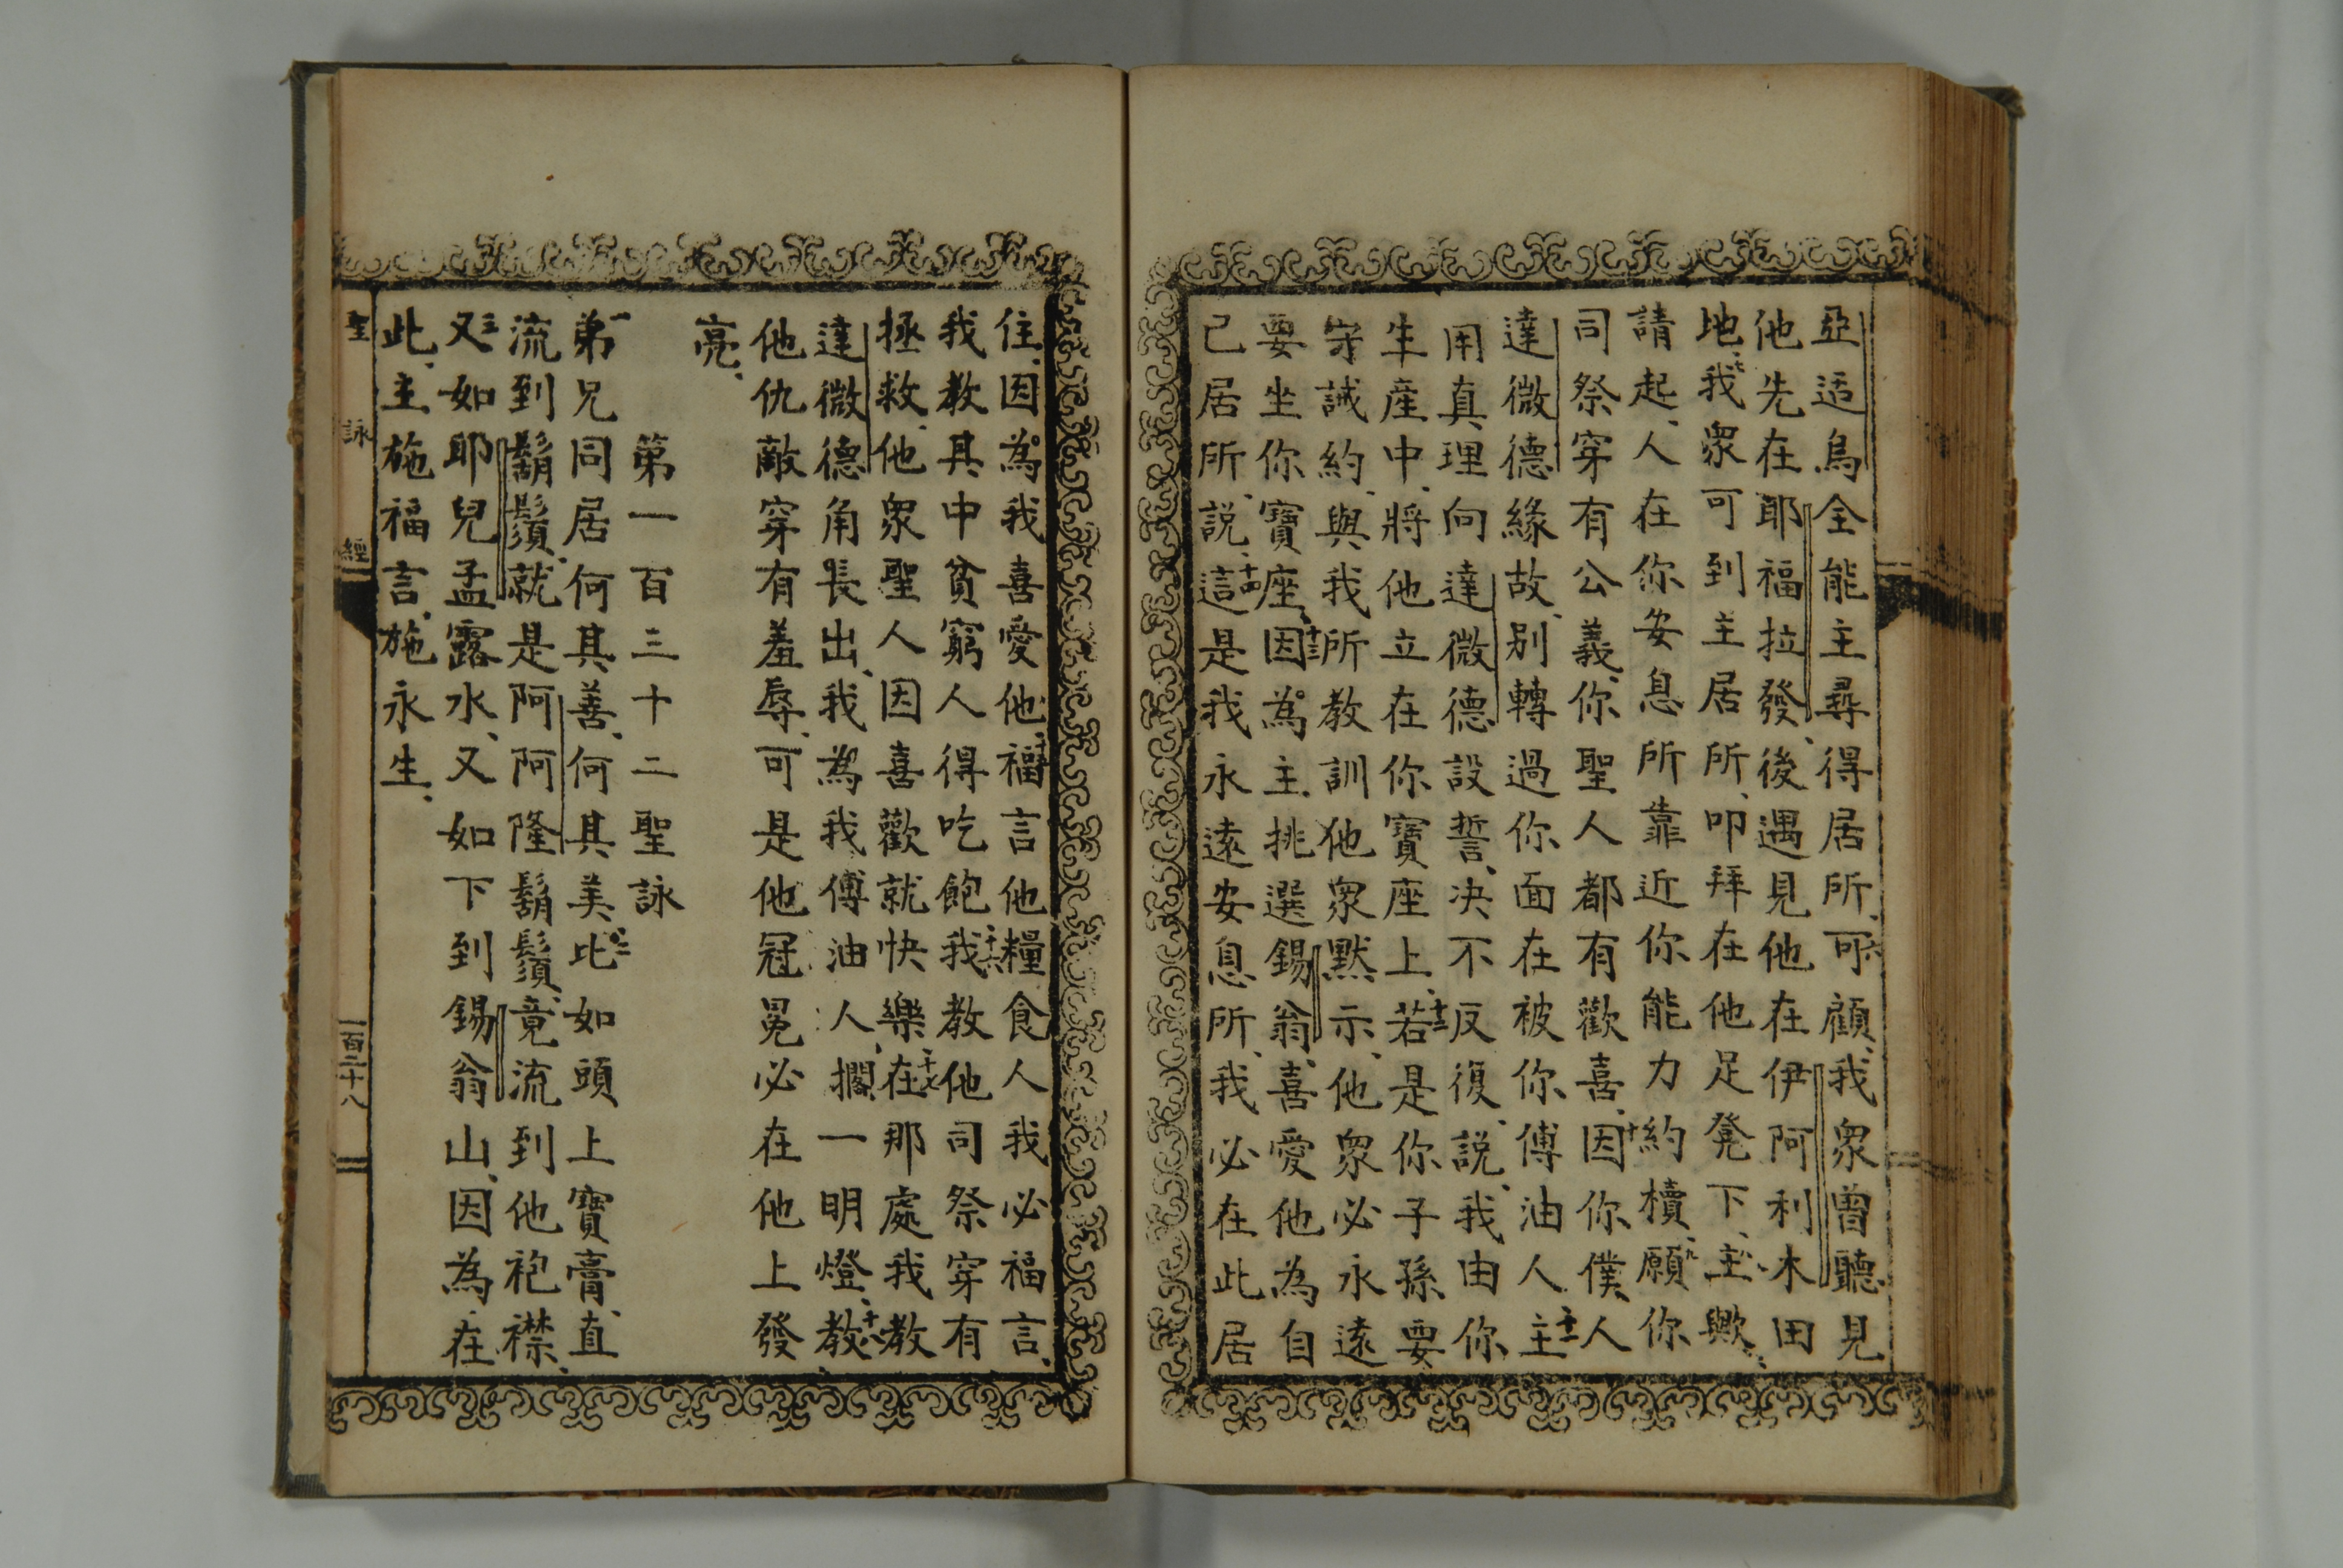 亞适烏全能主尋得居所、六可顧、我衆曾聽見
他先在耶福拉發、後遇見他在伊阿利木田
地、七我衆可到主居所、叩拜在他足凳下、八主歟、
請起、人在你安息所靠近你能力約櫝、九願你
司祭穿有公義、你聖人都有歡喜、十因你僕人
達微德緣故、别轉過你面在被你傅油人十一主
用真理向達微德設誓、决不反復、説、我由你
生產中、將他立在你寶座上、十二若是你子孫要
守誡約、與我所教訓他衆默示、他衆必永遠
要坐你寶座、十三因為主挑選錫翁、喜愛他為自
己居所、説、十四這是我永遠安息所、我必在此居
住、因為我喜愛他、十五福言他糧食人我必福言、
我教其中貧窮人得吃飽、十六我教他司祭穿有
拯救、他衆聖人因喜歡就快樂、十七在那處我教
達微德角長出、我為我傅油人、擱一明燈、十八教
他仇敵穿有羞辱、可是他冠冕必在他上發
亮、
第一百三十二聖詠
一弟兄同居何其善、何其美、二比如頭上寶膏、直
流到鬍鬚、就是阿阿隆鬍鬚、竟流到他袍襟、
三又如耶兒孟露水、又如下到錫翁山、因為在
此、主施福言、施永生、
聖詠經
一百二十八